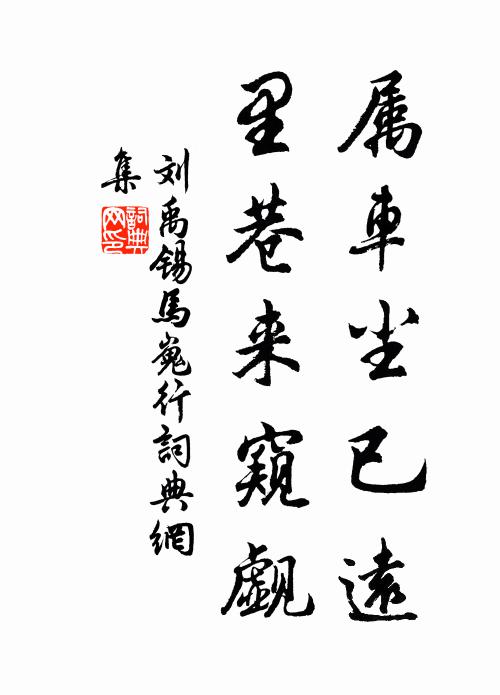 属車尘已遠
里巷来窥觑
刘禹锡馬嵬行詞典網
集
詞典网印